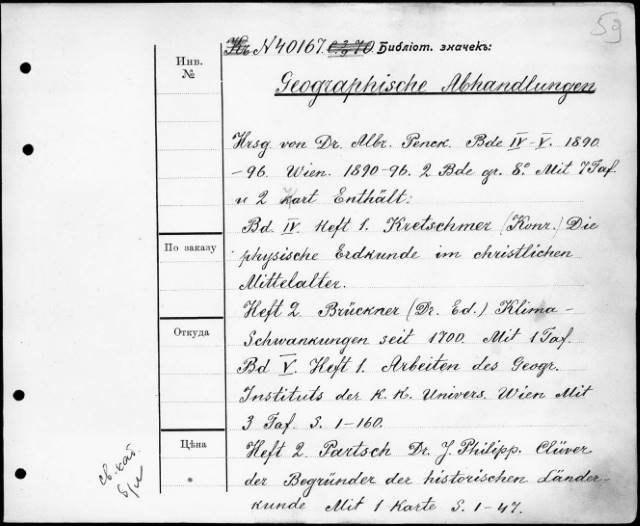 59
N 40167. Библіот. значекъ:
Инв.
№
Geographische Abhandlungen
Hrsg. von Dr. Albr. Penck. Bde IV-V. 1890
-96. Wien. 1890-96. 2 Bde gr. 8º Mit 7 Taf.
u 2 Kart Enthält:
Bd. IV. Heft 1. Kretschmer (Konr.) Die
По заказу
physische Erdkunde im christlichen
Mittelalter.
Heft 2 Brückner (Dr. Ed.) Klima-
Откуда
Schwankungen seit 1700. Mit 1 Taf.
Bd V. Heft 1. Arbeiten des Geogr.
Instituts der K. K. Univers. Wien Mit
3 Taf. S. 1-160.
Цѣна
Heft 2. Partsch Dr. J. Philipp. Clüver
der Begründer der historischen Länder-
kunde Mit 1 Karte S. 1-47.
св. кат.